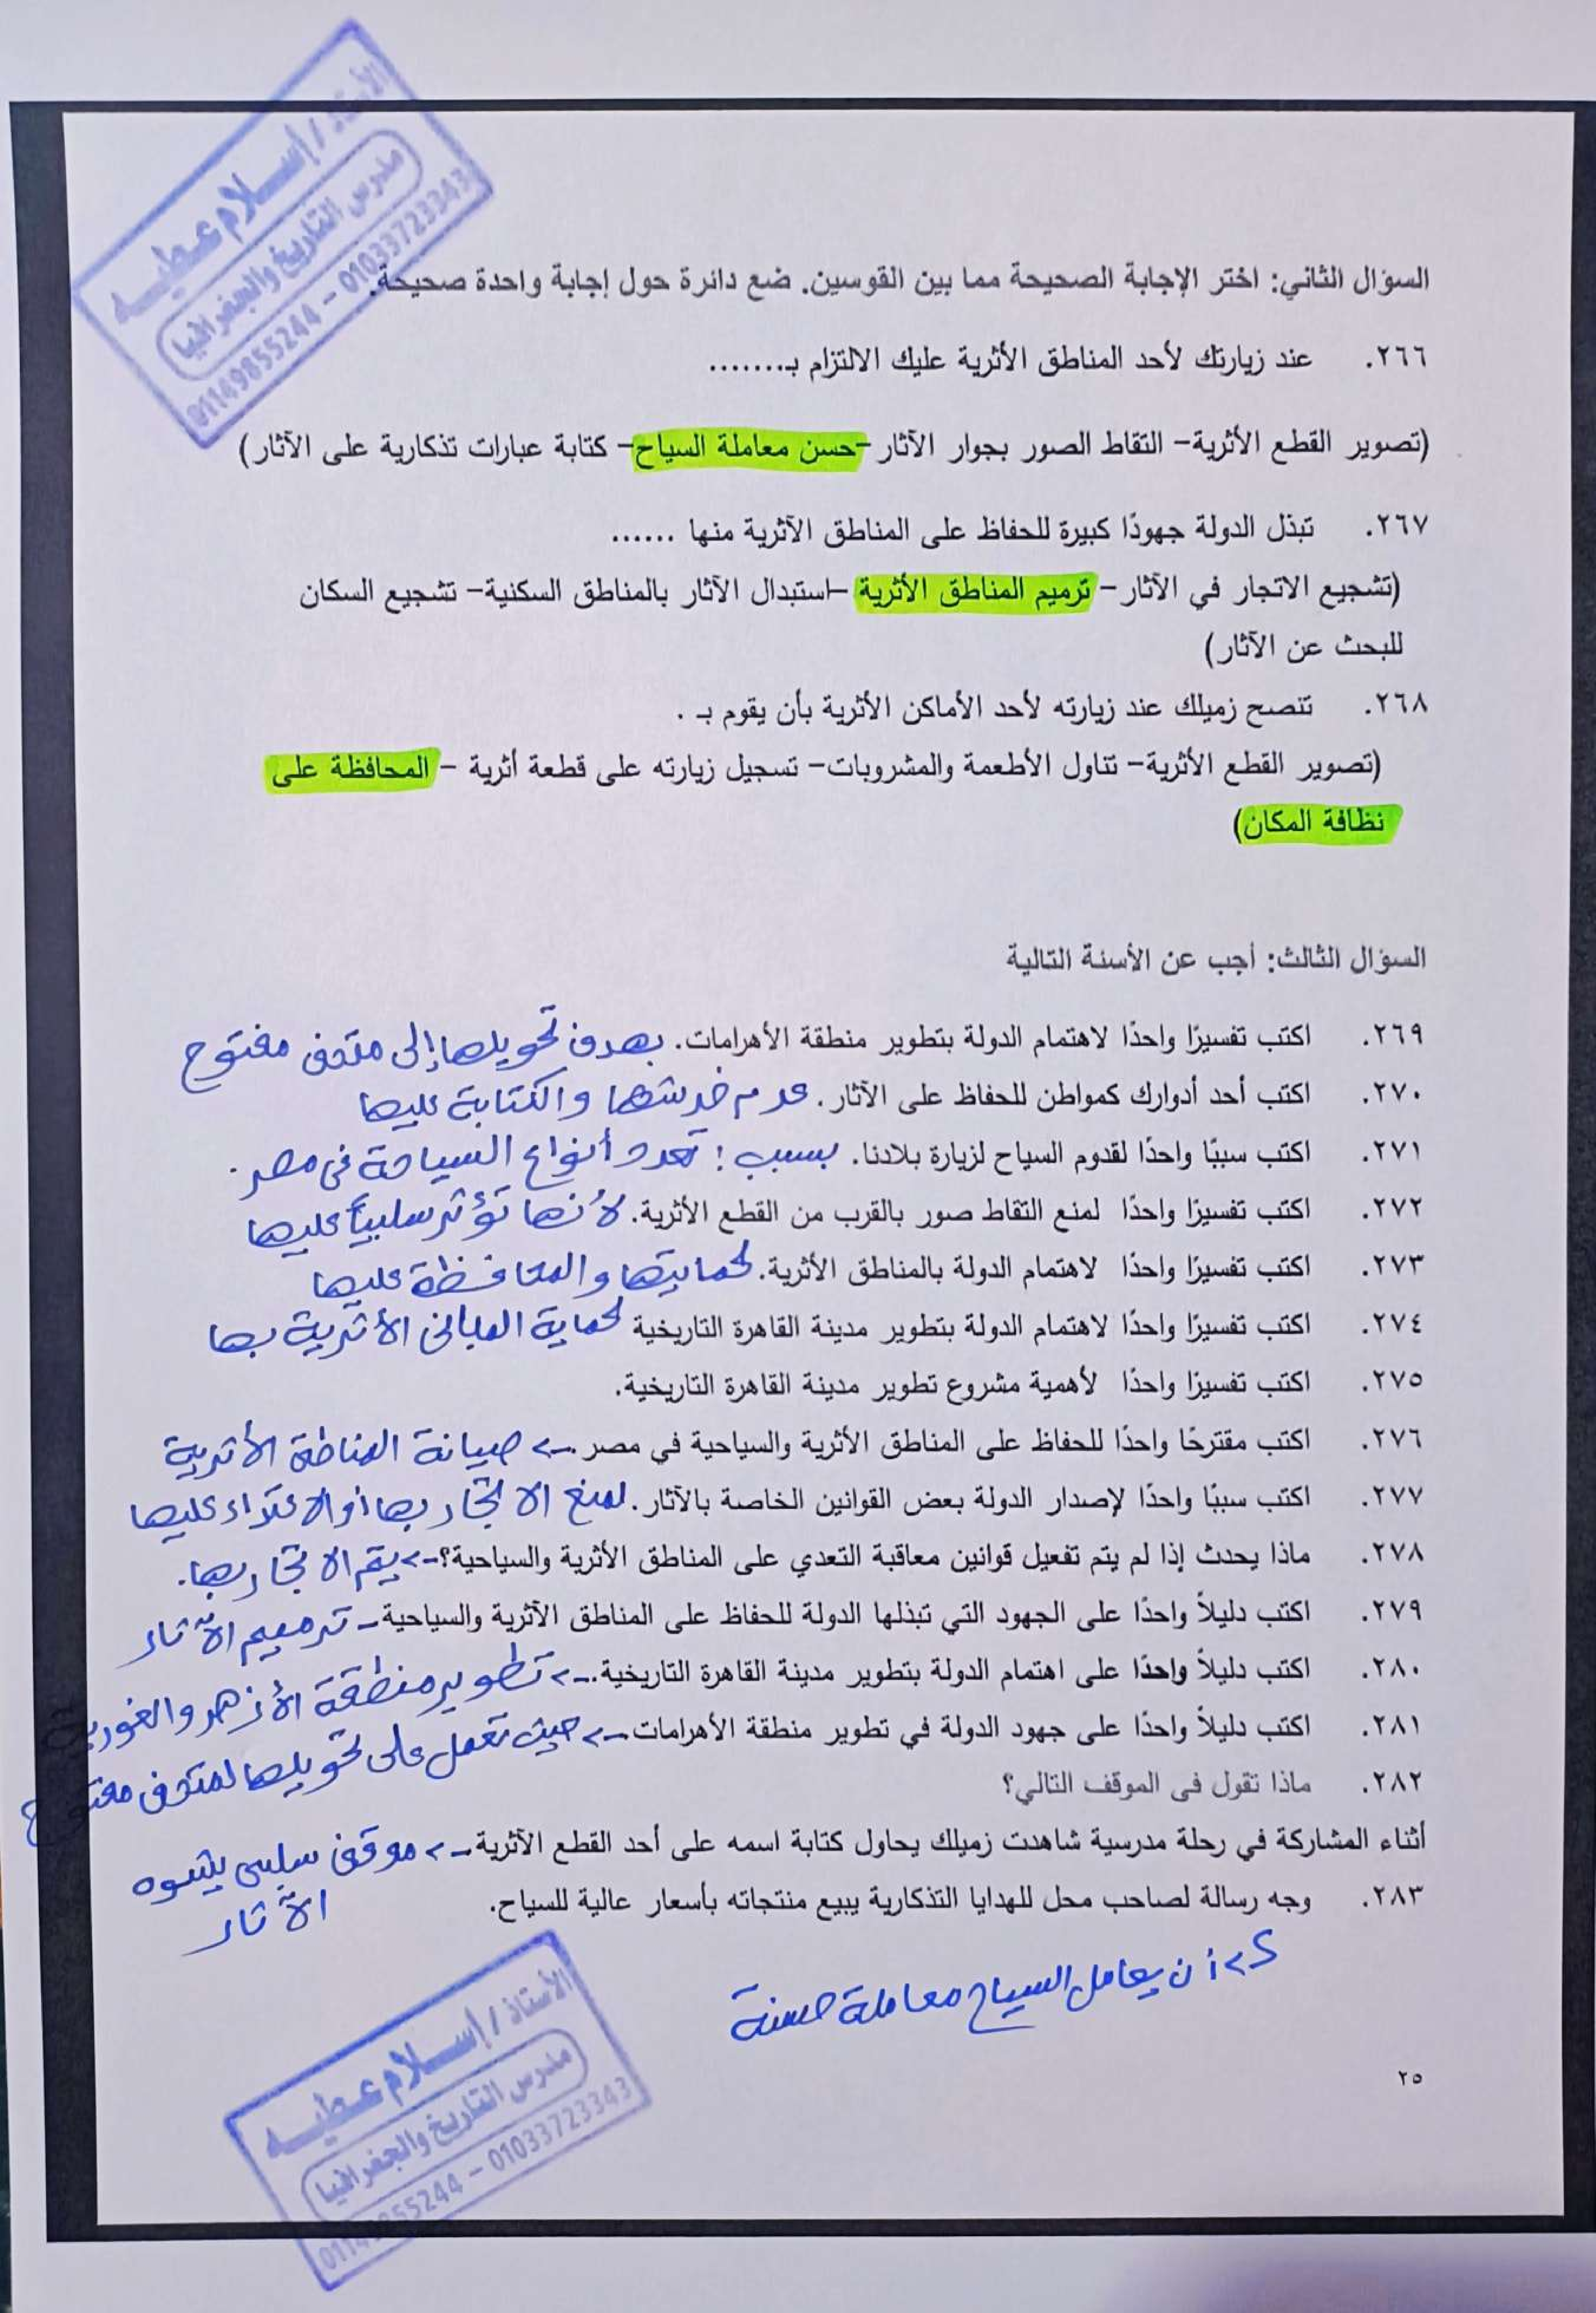 الأستاذ / إسلام عطيه
مدرس التاريخ والجغرافيا
01149855244 - 01033723343
السؤال الثاني: اختر الإجابة الصحيحة مما بين القوسين. ضع دائرة حول إجابة واحدة صحيحة.
٢٦٦. عند زيارتك لأحد المناطق الأثرية عليك الالتزام بـ.......
(تصوير القطع الأثرية– التقاط الصور بجوار الآثار –حسن معاملة السياح– كتابة عبارات تذكارية على الآثار)
٢٦٧. تبذل الدولة جهودًا كبيرة للحفاظ على المناطق الآثرية منها ......
(تشجيع الاتجار في الآثار– ترميم المناطق الأثرية –استبدال الآثار بالمناطق السكنية– تشجيع السكان
للبحث عن الآثار)
٢٦٨. تنصح زميلك عند زيارته لأحد الأماكن الأثرية بأن يقوم بـ .
(تصوير القطع الأثرية– تناول الأطعمة والمشروبات– تسجيل زيارته على قطعة أثرية – المحافظة على
نظافة المكان)
السؤال الثالث: أجب عن الأسئلة التالية
٢٦٩. اكتب تفسيرًا واحدًا لاهتمام الدولة بتطوير منطقة الأهرامات. بهدف تحويلها إلى متحف مفتوح
٢٧٠. اكتب أحد أدوارك كمواطن للحفاظ على الآثار. عدم خدشها والكتابة عليها
٢٧١. اكتب سببًا واحدًا لقدوم السياح لزيارة بلادنا. بسبب : تعدد أنواع السياحة فى مصر.
٢٧٢. اكتب تفسيرًا واحدًا لمنع التقاط صور بالقرب من القطع الأثرية. لأنها تؤثر سلبياً عليها
٢٧٣. اكتب تفسيرًا واحدًا لاهتمام الدولة بالمناطق الأثرية. لحمايتها والمحافظة عليها
٢٧٤. اكتب تفسيرًا واحدًا لاهتمام الدولة بتطوير مدينة القاهرة التاريخية لحماية المبانى الأثرية بها
٢٧٥. اكتب تفسيرًا واحدًا لأهمية مشروع تطوير مدينة القاهرة التاريخية.
٢٧٦. اكتب مقترحًا واحدًا للحفاظ على المناطق الأثرية والسياحية في مصر .-> صيانة المناطق الأثرية
٢٧٧. اكتب سببًا واحدًا لإصدار الدولة بعض القوانين الخاصة بالآثار. لمنع الاتجار بها أو الاعتداء عليها
٢٧٨. ماذا يحدث إذا لم يتم تفعيل قوانين معاقبة التعدي على المناطق الأثرية والسياحية؟-> يتم الاتجار بها.
٢٧٩. اكتب دليلاً واحدًا على الجهود التي تبذلها الدولة للحفاظ على المناطق الآثرية والسياحية – ترميم الآثار
٢٨٠. اكتب دليلاً واحدًا على اهتمام الدولة بتطوير مدينة القاهرة التاريخية.-> تطوير منطقة الأزهر والغورية
٢٨١. اكتب دليلاً واحدًا على جهود الدولة في تطوير منطقة الأهرامات -> حيث تعمل على تحويلها لمتحف مفتوح
٢٨٢. ماذا تقول فى الموقف التالي؟
أثناء المشاركة في رحلة مدرسية شاهدت زميلك يحاول كتابة اسمه على أحد القطع الآثرية -> موقف سلبى يشوه
الآثار
٢٨٣. وجه رسالة لصاحب محل للهدايا التذكارية يبيع منتجاته بأسعار عالية للسياح.
-> أن يعامل السياح معاملة حسنة
٢٥
الأستاذ / إسلام عطيه
مدرس التاريخ والجغرافيا
01149855244 - 01033723343